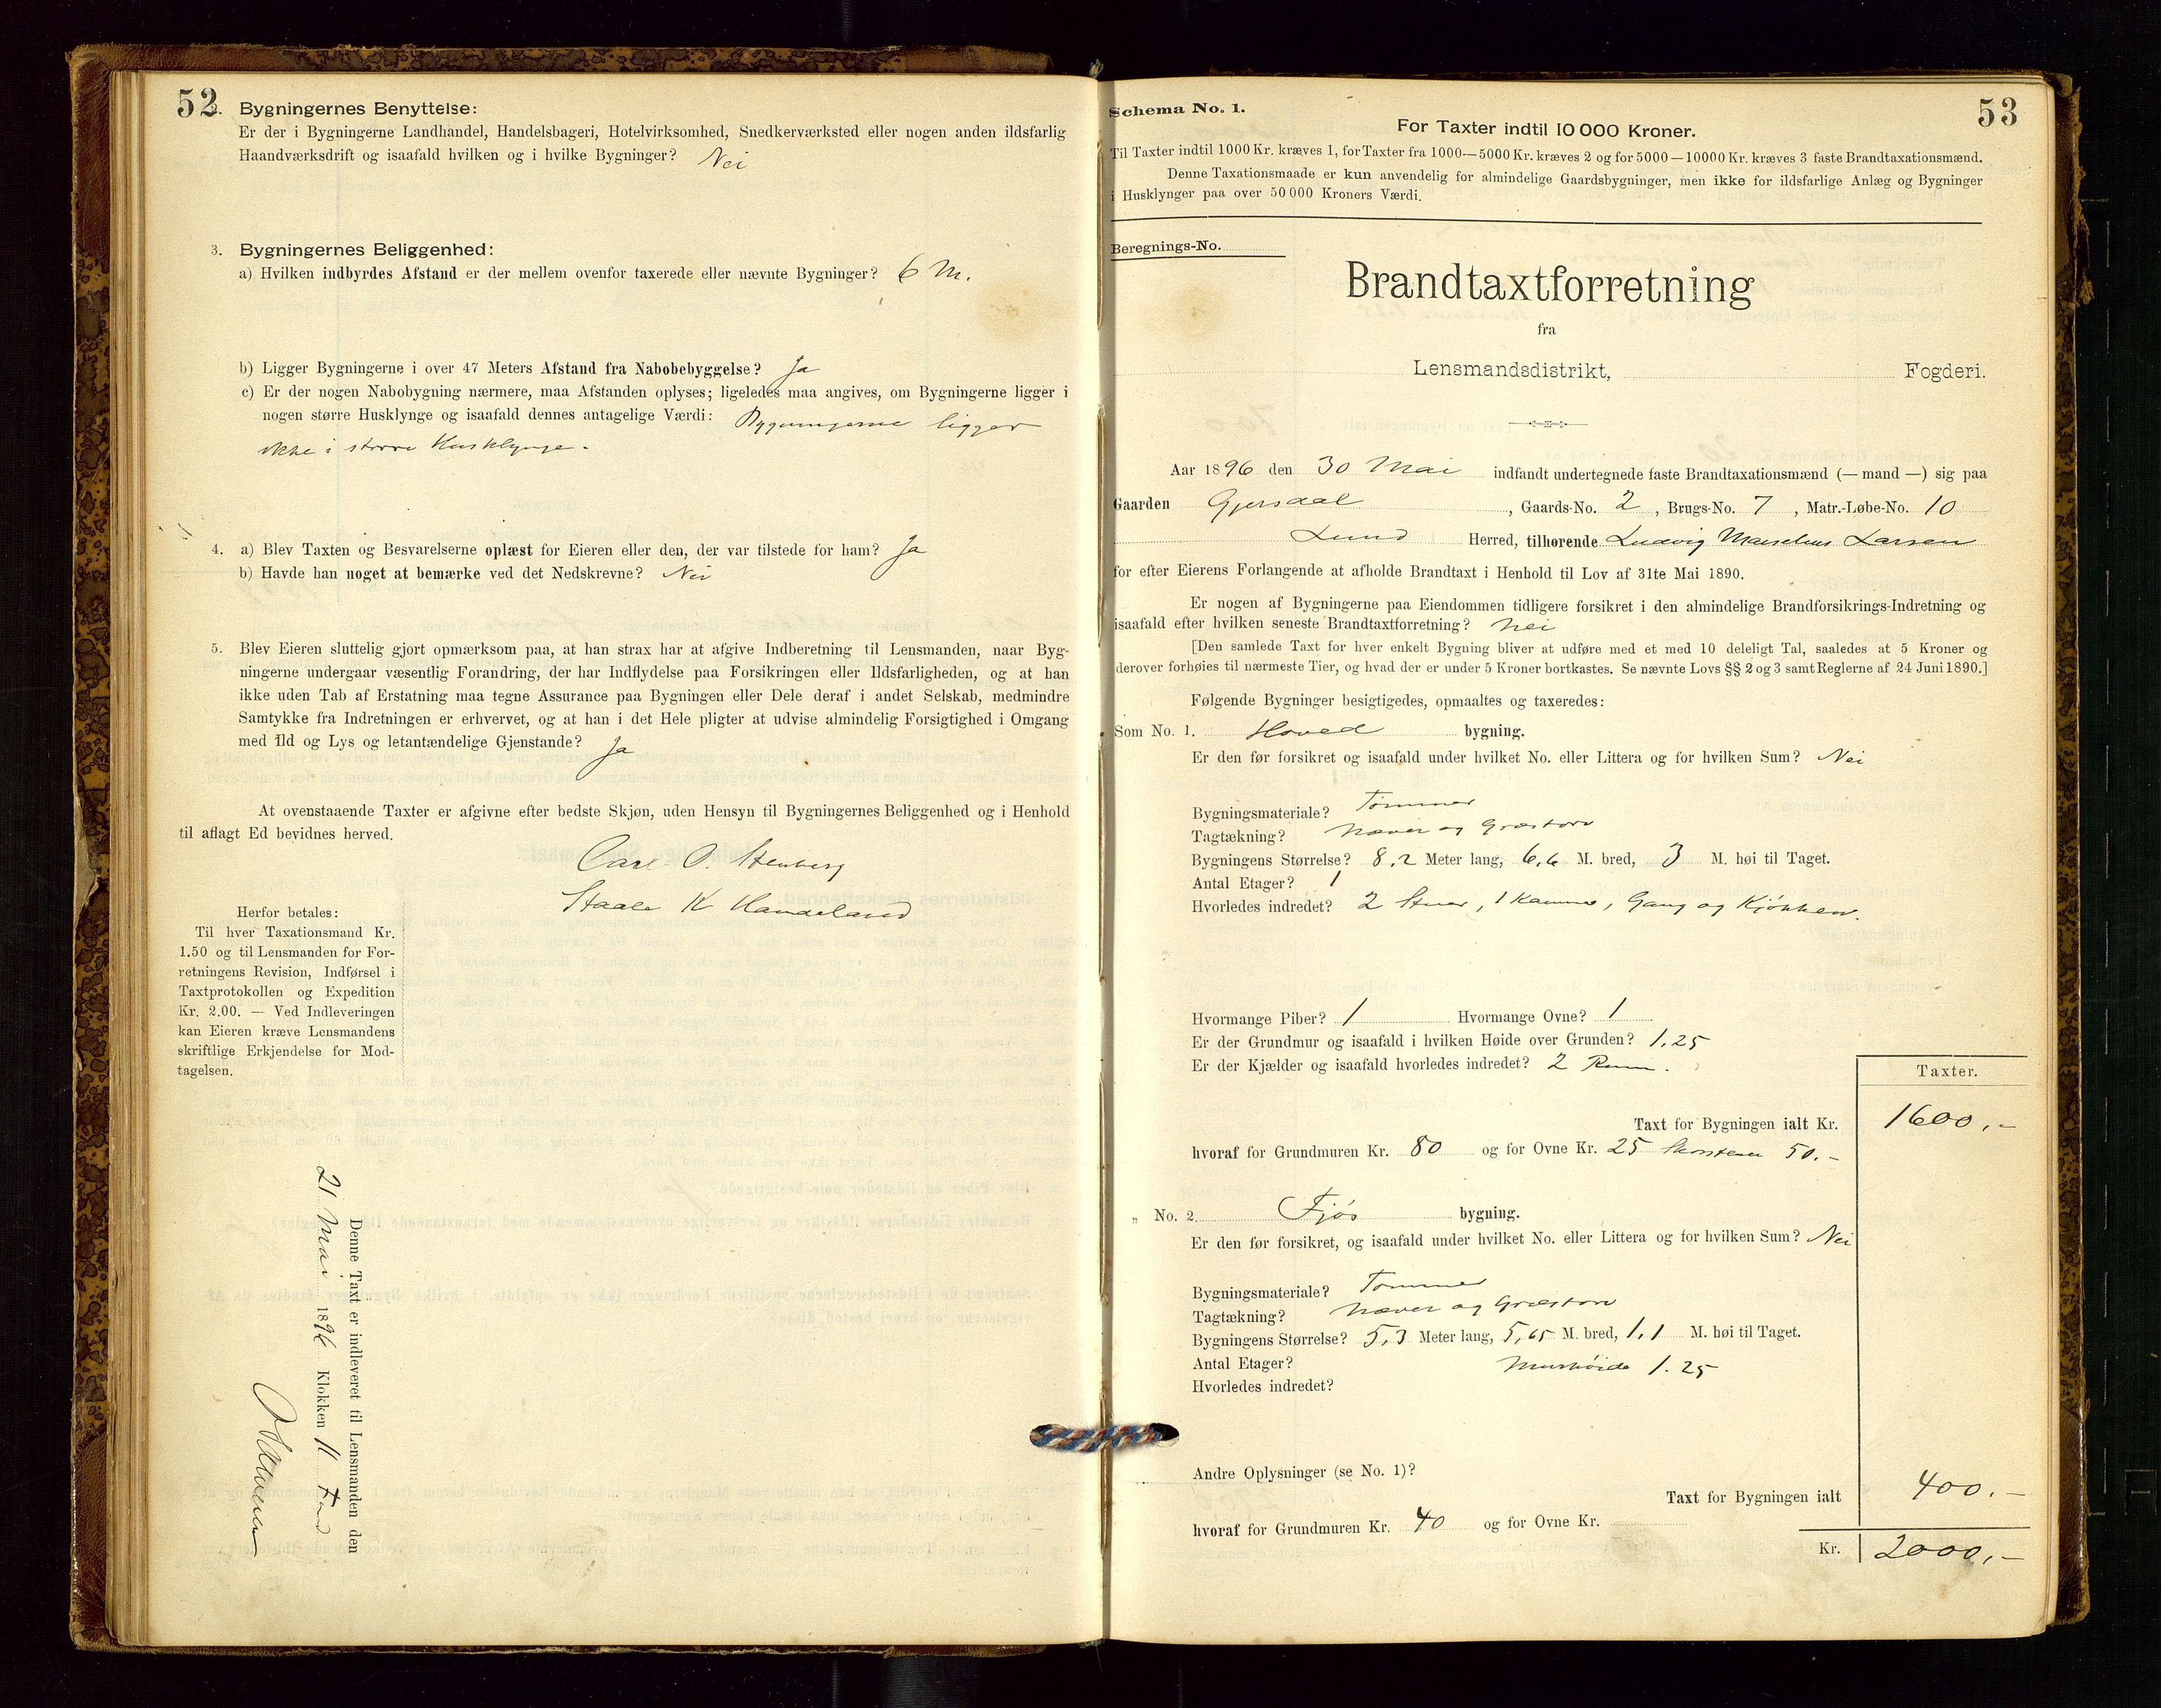 52
2. Bygningernes Benyttelse:
Er der i Bygningerne Landhandel, Handelsbageri, Hotelvirksomhed, Snedkerværksted eller nogen anden ildsfarlig
Haandværksdrift og isaafald hvilken og i hvilke Bygninger? Nei
3. Bygningernes Beliggenhed:
a) Hvilken indbyrdes Afstand er der mellem ovenfor taxerede eller nævnte Bygninger? 6 M.
b) Ligger Bygningerne i over 47 Meters Afstand fra Nabobebyggelse? Ja
c) Er der nogen Nabobygning nærmere, maa Afstanden oplyses; ligeledes maa angives, om Bygningerne ligger i
nogen større Husklynge og isaafald dennes antagelige Værdi: Bygningerne ligger
ikke i større Husklynge.
4. a) Blev Taxten og Besvarelserne oplæst for Eieren eller den, der var tilstede for ham? Ja
b) Havde han noget at bemærke ved det Nedskrevne? Nei
5. Blev Eieren sluttelig gjort opmærksom paa, at han strax har at afgive Indberetning til Lensmanden, naar Byg-
ningerne undergaar væsentlig Forandring, der har Indflydelse paa Forsikringen eller Ildsfarligheden, og at han
ikke uden Tab af Erstatning maa tegne Assurance paa Bygningen eller Dele deraf i andet Selskab, medmindre
Samtykke fra Indretningen er erhvervet, og at han i det Hele pligter at udvise almindelig Forsigtighed i Omgang
med Ild og Lys og letantændelige Gjenstande? Ja
At ovenstaaende Taxter er afgivne efter bedste Skjøn, uden Hensyn til Bygningernes Beliggenhed og i Henhold
til aflagt Ed bevidnes herved.
Carl O. Stenberg
Staale K Handeland
Herfor betales:
Til hver Taxationsmand Kr.
1.50 og til Lensmanden for For-
retningens Revision, Indførsel i
Taxtprotokollen og Expedition
Kr. 2.00. — Ved Indleveringen
kan Eieren kræve Lensmandens
skriftlige Erkjendelse for Mod-
tagelsen.
Denne Taxt er indleveret til Lensmanden den
21 Mai 1896 Klokken 11
53
Schema No. 1.
For Taxter indtil 10 000 Kroner.
Til Taxter indtil 1000 Kr. kræves 1, for Taxter fra 1000—5000 Kr. kræves 2 og for 5000—10000 Kr. kræves 3 faste Brandtaxationsmænd.
Denne Taxationsmaade er kun anvendelig for almindelige Gaardsbygninger, men ikke for ildsfarlige Anlæg og Bygninger
i Husklynger paa over 50 000 Kroners Værdi.
Beregnings-No.
Brandtaxtforretning
fra
Lensmandsdistrikt, Fogderi.
Aar 1896 den 30 Mai indfandt undertegnede faste Brandtaxationsmænd (— mand —) sig paa
Gaarden Gjersdal, Gaards-No. 2, Brugs-No. 7, Matr.-Løbe-No. 10
Lund Herred, tilhørende Ludvig Marselius Larsen
for efter Eierens Forlangende at afholde Brandtaxt i Henhold til Lov af 31te Mai 1890.
Er nogen af Bygningerne paa Eiendommen tidligere forsikret i den almindelige Brandforsikrings-Indretning og
isaafald efter hvilken seneste Brandtaxtforretning? Nei
[Den samlede Taxt for hver enkelt Bygning bliver at udføre med et med 10 deleligt Tal, saaledes at 5 Kroner og
derover forhøies til nærmeste Tier, og hvad der er under 5 Kroner bortkastes. Se nævnte Lovs §§ 2 og 3 samt Reglerne af 24 Juni 1890.]
Følgende Bygninger besigtigedes, opmaaltes og taxeredes:
Som No. 1. Hoved bygning.
Er den før forsikret og isaafald under hvilket No. eller Littera og for hvilken Sum? Nei
Bygningsmateriale? Tømmer
Tagtækning? Næver og Græstorv
Bygningens Størrelse? 8,2 Meter lang, 6,6 M. bred, 3 M. høi til Taget.
Antal Etager? 1
Hvorledes indredet? 2 Stuer, 1 Kammer, Gang og Kjøkken.
Hvormange Piber? 1 Hvormange Ovne? 1
Er der Grundmur og isaafald i hvilken Høide over Grunden? 1,25
Er der Kjælder og isaafald hvorledes indredet? 2 Rum.
Taxter.
Taxt for Bygningen ialt Kr. 1600,-
hvoraf for Grundmuren Kr. 80 og for Ovne Kr. 25 Skorsten 50.-
„ No. 2. Fjøs bygning.
Er den før forsikret, og isaafald under hvilket No. eller Littera og for hvilken Sum? Nei
Bygningsmateriale? Tømmer
Tagtækning? Næver og Græstorv
Bygningens Størrelse? 5,3 Meter lang, 5,65 M. bred, 1,1 M. høi til Taget.
Antal Etager? Murhøide 1.25
Hvorledes indredet?
Andre Oplysninger (se No. 1)?
Taxt for Bygningen ialt 400.-
hvoraf for Grundmuren Kr. 40 og for Ovne Kr.
Kr. 2000,-